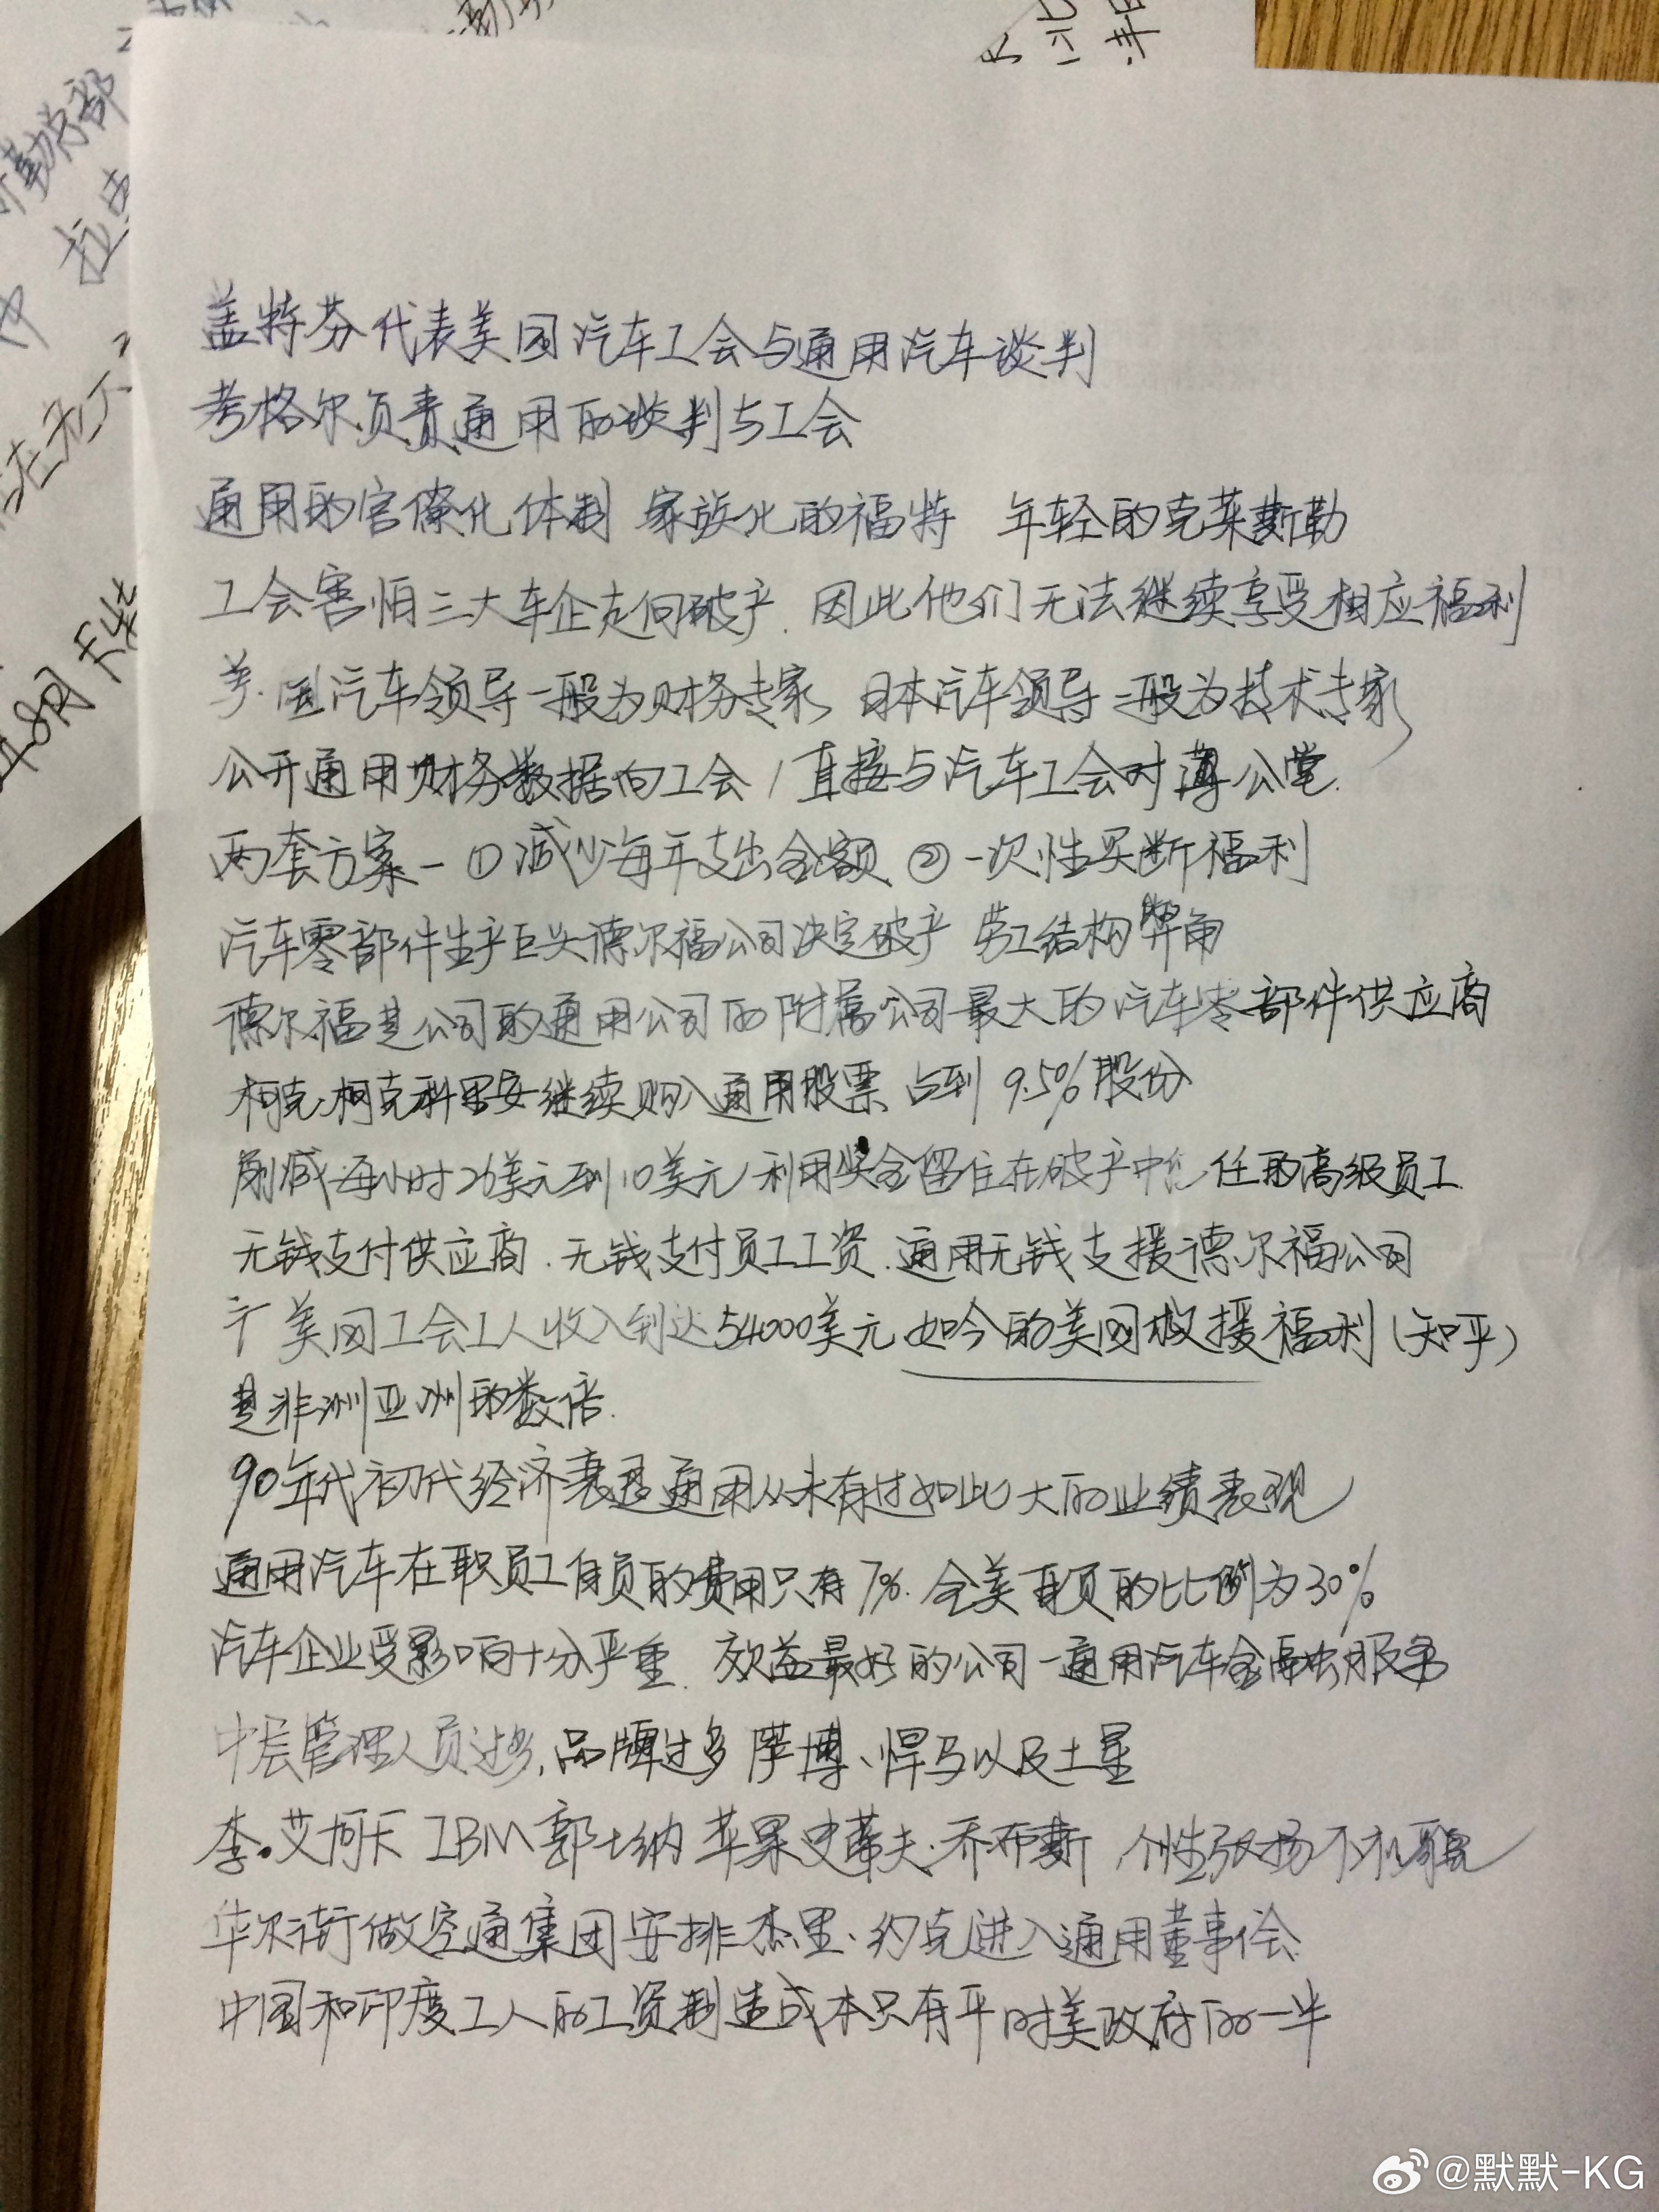 盖特芬代表美国汽车工会与通用汽车谈判
考格尔负责通用的谈判与工会
通用的官僚化体制 家族化的福特 年轻的克莱斯勒
工会害怕三大车企走向破产.因此他们无法继续享受相应福利
美国汽车领导一般为财务专家 日本汽车领导一般为技术专家
公开通用财务数据向工会/直接与汽车工会对薄公堂.
两套方案-①减少每年支出金额 ②一次性买断福利
汽车零部件生产巨头德尔福公司决定破产 劳工结构
德尔福是公司的通用公司的附属公司最大的汽车零部件供应商
柯克·柯克科里安继续购入通用股票 占到9.5%股份
削减每小时26美元到10美元 利用奖金留住在破产中 任的高级员工
无钱支付供应商.无钱支付员工工资.通用无钱支援德尔福公司
美国工会工人收入到达54000美元 如今的美国救援福利(知乎)
是非洲亚洲的数倍.
90年代初代经济衰退通用从未有过如此大的业绩表现
通用汽车在职员工自负的费用只有7%.全美自负的比例为30%
汽车企业受影响十分严重.效益最好的公司-通用汽车金融服务
中层管理人员过多,品牌过多 萨博、悍马以及土星
李·艾柯卡 IBM郭士纳 苹果史蒂夫·乔布斯 个性张扬不礼貌
华尔街做空通集团安排杰里·约克进入通用董事会
中国和印度工人的工资制造成本只有平时美政府的一半
@默默-KG